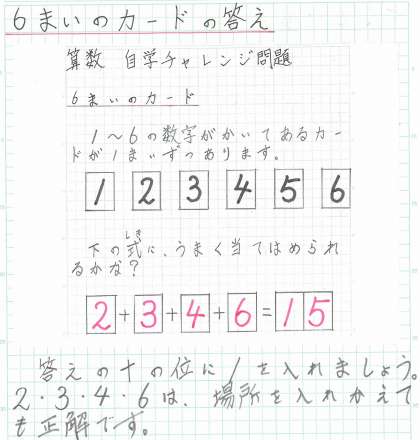 6まいのカードの答え
算数 自学チャレンジ問題
6まいのカード
1～6の数字がかいてあるカー
ドが1まいずつあります。
1 2 3 4 5 6
下の式に、うまく当てはめられ
しき
るかな?
2+3+4+6=15
答えの十の位に1を入れましょう。
2・3・4・6は、場所を入れかえて
も正解です。